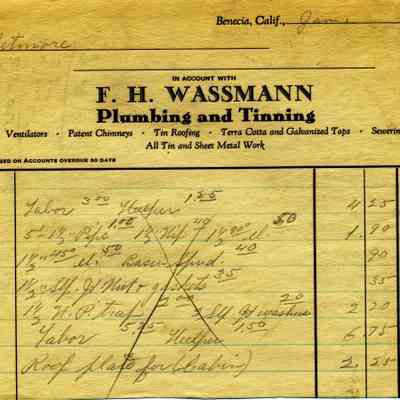 Benecia, Calif., Jan. 1
etmore
IN ACCOUNT WITH
F. H. WASSMANN
Plumbing and Tinning
Ventilators · Patent Chimneys · Tin Roofing · Terra Cotta and Galvanized Tops · Sewerin
All Tin and Sheet Metal Work
SED ON ACCOUNTS OVERDUE 30 DAYS
Labor 3.00 Helper 1.25 4 25
5 ft 1½" Pipe 1.00 1½ Nip 40 1½ 90° el 50 1. 90
1½" 45° el 50 Basin Spud 40 90
1½" Slip Jt Nut & gaskets 35 35
1½ N. P. trap 2.00 2 Slip Jt washers 20 2 20
Labor 5.25 Helper 1.50 6 75
Roof plate for (Cabin) 2. 25